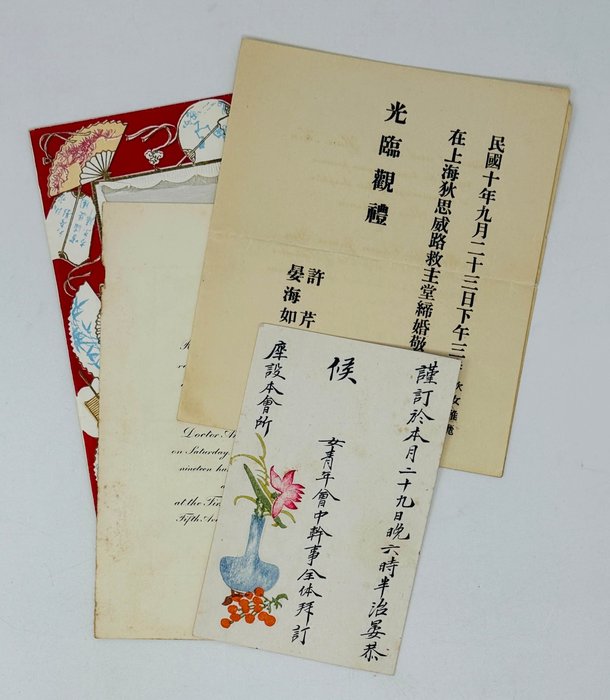 民國十年九月二十三日下午三
在上海狄思威路救主堂締婚敬
光臨觀禮
許芹
晏海如
謹訂於本月二十九日晚六時半治晏恭
候
女青年會中幹事全体拜訂
席設本會所
Doctor
on Saturday
nineteen hu
at the Fir
Fifth Av